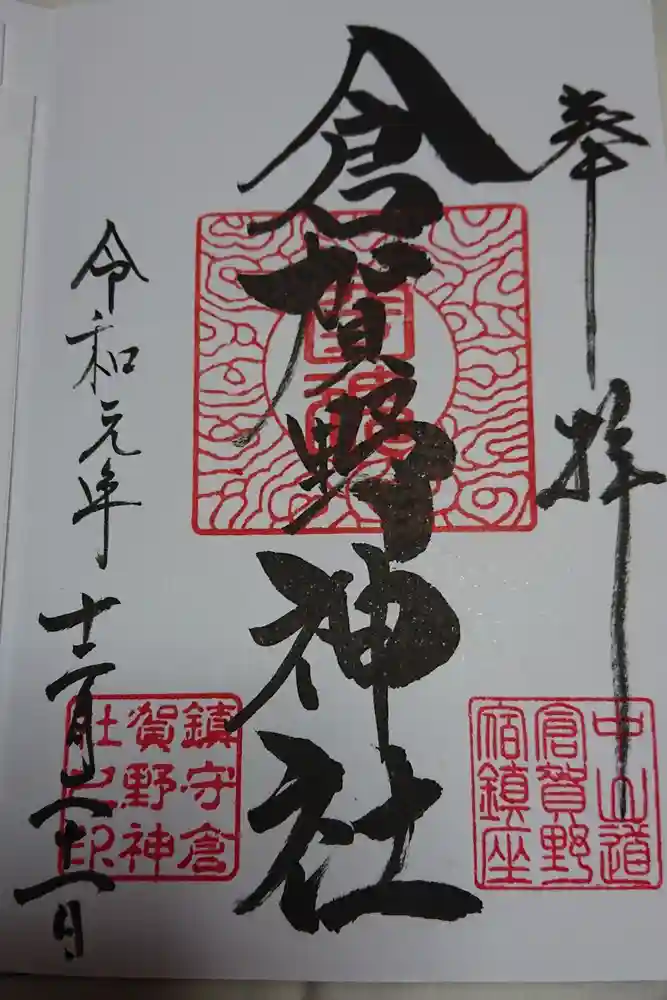 奉拝
中山道
倉賀野
宿鎮座
倉賀野神社
令和元年十二月二十一日
鎮守倉
賀野神
社之印